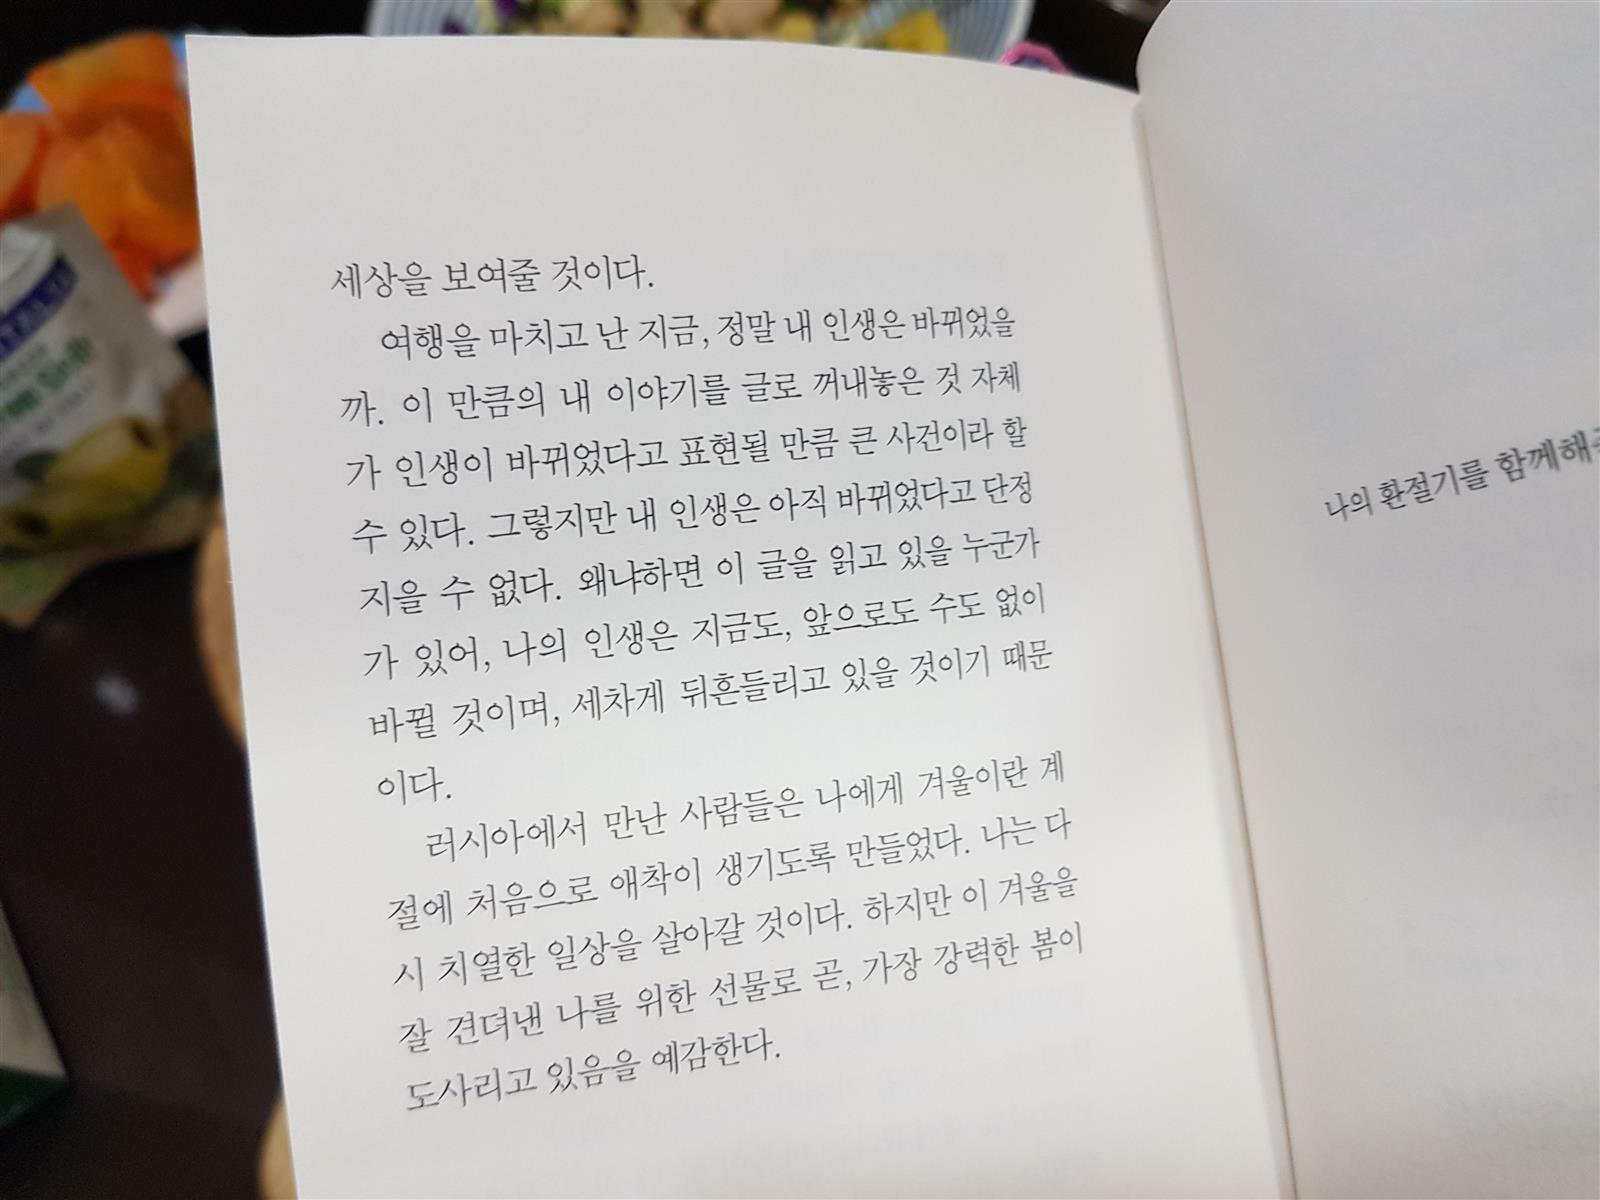 세상을 보여줄 것이다.
여행을 마치고 난 지금, 정말 내 인생은 바뀌었을
까. 이 만큼의 내 이야기를 글로 꺼내놓은 것 자체
가 인생이 바뀌었다고 표현될 만큼 큰 사건이라 할
수 있다. 그렇지만 내 인생은 아직 바뀌었다고 단정
지을 수 없다. 왜냐하면 이 글을 읽고 있을 누군가
가 있어, 나의 인생은 지금도, 앞으로도 수도 없이
바뀔 것이며, 세차게 뒤흔들리고 있을 것이기 때문
이다.
러시아에서 만난 사람들은 나에게 겨울이란 계
절에 처음으로 애착이 생기도록 만들었다. 나는 다
시 치열한 일상을 살아갈 것이다. 하지만 이 겨울을
잘 견뎌낸 나를 위한 선물로 곧, 가장 강력한 봄이
도사리고 있음을 예감한다.
나의 환절기를 함께해